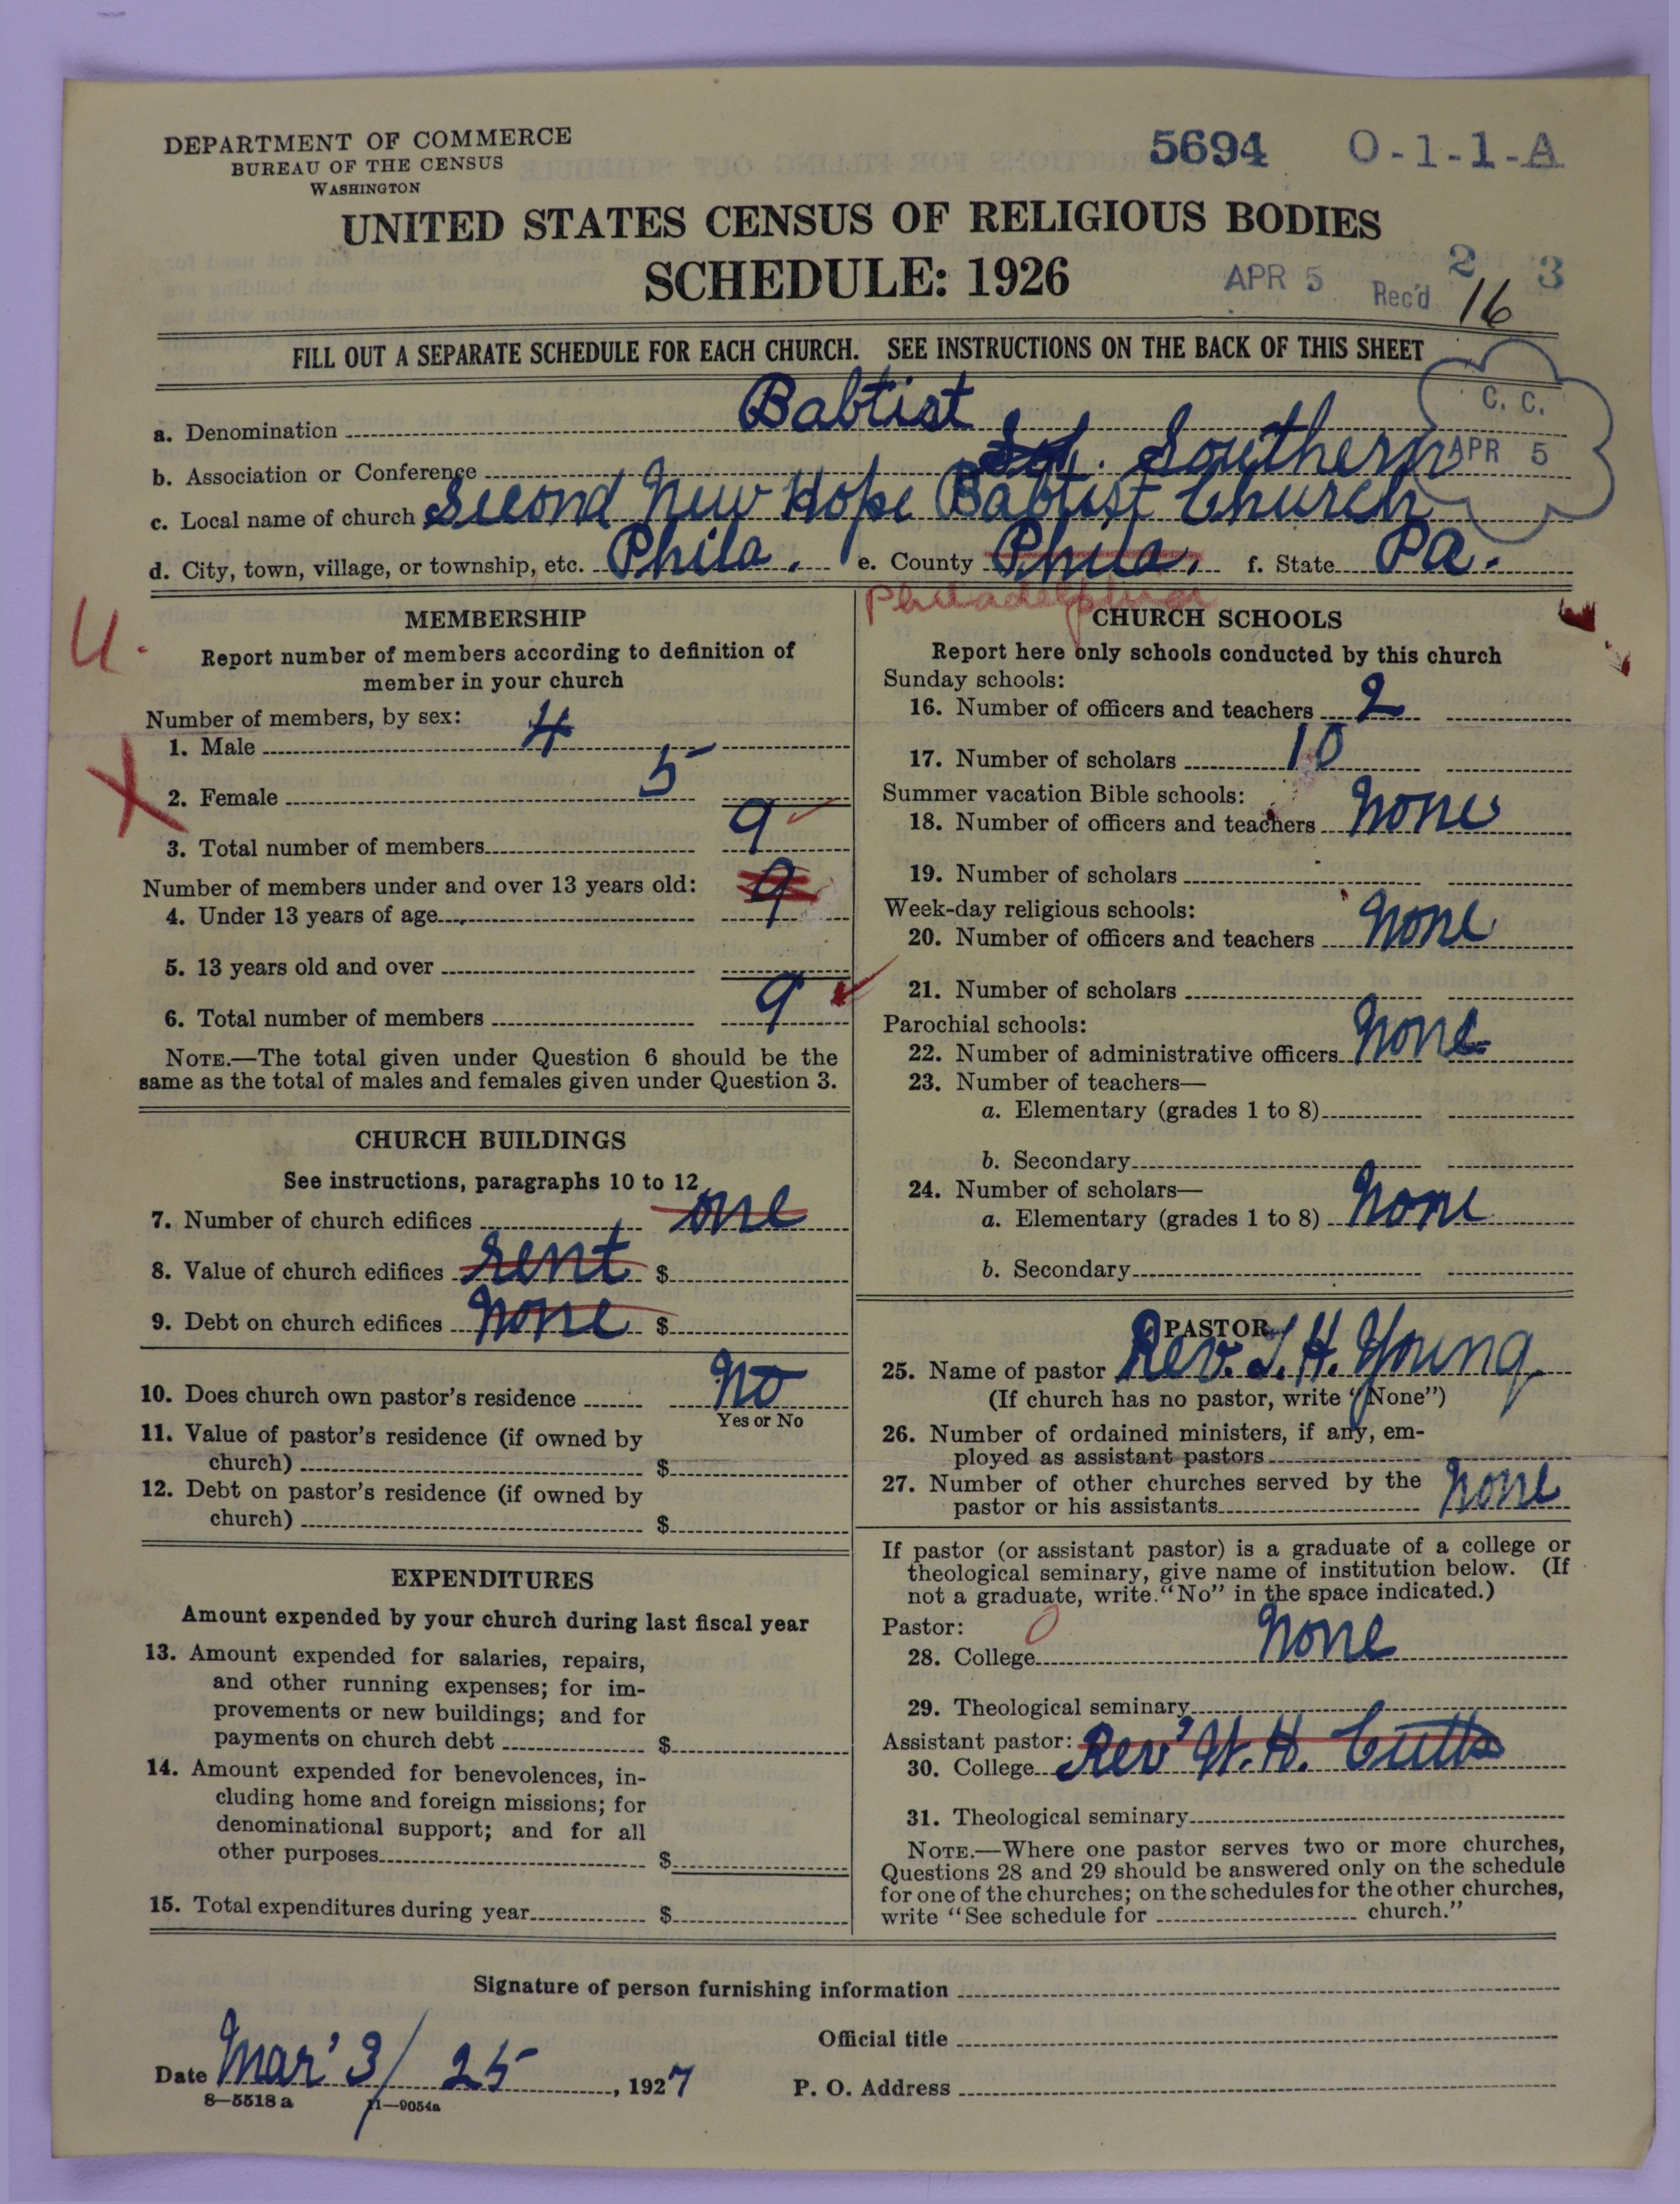 DEPARTMENT OF COMMERCE
BUREAU OF THE CENSUS
WASHINGTON
5694 0-1-1-A
UNITED STATES CENSUS OF RELIGIOUS BODIES
SCHEDULE: 1926
APR 5 Rec'd 2 3
16
FILL OUT A SEPARATE SCHEDULE FOR EACH CHURCH. SEE INSTRUCTIONS ON THE BACK OF THIS SHEET
C. C.
APR 5
a. Denomination Babtist
b. Association or Conference Southern
c. Local name of church Second New Hope Babtist Church
d. City, town, village, or township, etc. Phila. e. County Phila. f. State Pa.
Philadelphia
U.
X
MEMBERSHIP
Report number of members according to definition of
member in your church
Number of members, by sex:
1. Male 4
2. Female 5
3. Total number of members 9
Number of members under and over 13 years old:
4. Under 13 years of age 9
5. 13 years old and over
6. Total number of members 9
NOTE.—The total given under Question 6 should be the
same as the total of males and females given under Question 3.
CHURCH BUILDINGS
See instructions, paragraphs 10 to 12
7. Number of church edifices one
8. Value of church edifices rent $
9. Debt on church edifices none $
10. Does church own pastor's residence no
Yes or No
11. Value of pastor's residence (if owned by
church) $
12. Debt on pastor's residence (if owned by
church) $
EXPENDITURES
Amount expended by your church during last fiscal year
13. Amount expended for salaries, repairs,
and other running expenses; for im-
provements or new buildings; and for
payments on church debt $
14. Amount expended for benevolences, in-
cluding home and foreign missions; for
denominational support; and for all
other purposes $
15. Total expenditures during year $
CHURCH SCHOOLS
Report here only schools conducted by this church
Sunday schools:
16. Number of officers and teachers 2
17. Number of scholars 10
Summer vacation Bible schools:
18. Number of officers and teachers none
19. Number of scholars
Week-day religious schools:
20. Number of officers and teachers none
21. Number of scholars
Parochial schools:
22. Number of administrative officers none
23. Number of teachers—
a. Elementary (grades 1 to 8)
b. Secondary
24. Number of scholars—
a. Elementary (grades 1 to 8) none
b. Secondary
PASTOR
25. Name of pastor Rev. J. H. Young
(If church has no pastor, write "None")
26. Number of ordained ministers, if any, em-
ployed as assistant pastors
27. Number of other churches served by the
pastor or his assistants none
If pastor (or assistant pastor) is a graduate of a college or
theological seminary, give name of institution below. (If
not a graduate, write "No" in the space indicated.)
Pastor: 0
28. College none
29. Theological seminary
Assistant pastor:
30. College Rev W. H. Cutts
31. Theological seminary
NOTE.—Where one pastor serves two or more churches,
Questions 28 and 29 should be answered only on the schedule
for one of the churches; on the schedules for the other churches,
write "See schedule for church."
Signature of person furnishing information
Official title
Date Mar' 3/ 25, 1927 P. O. Address
8—5518 a 11—9054a